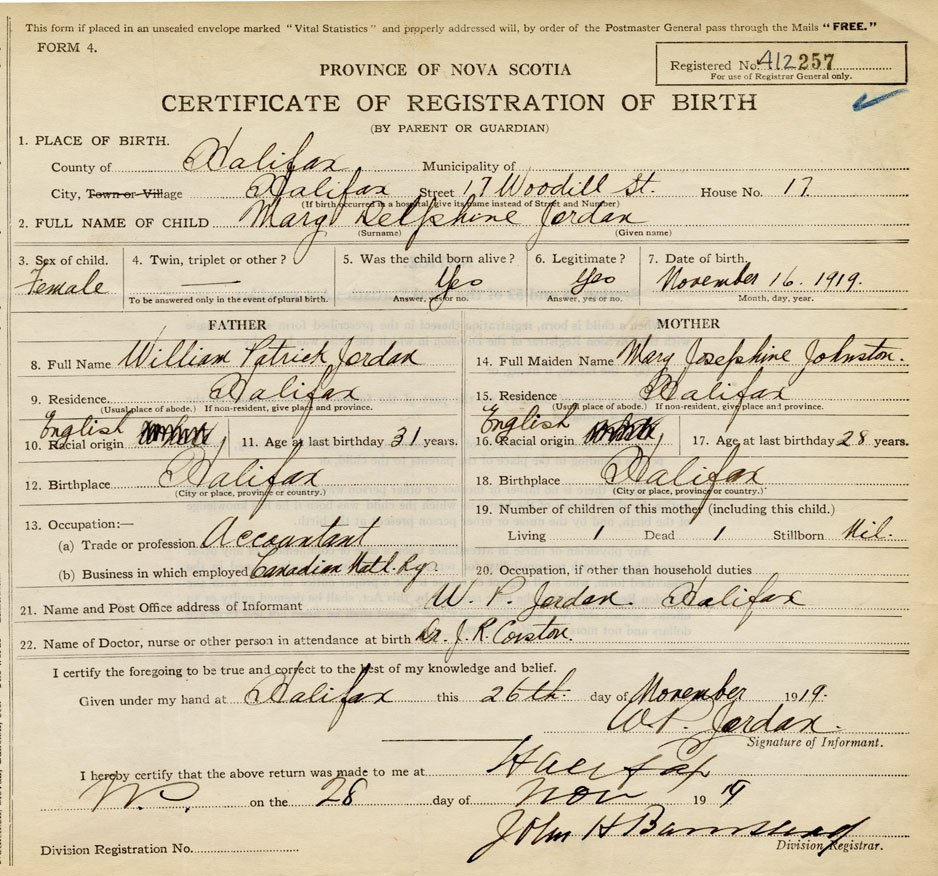 This form if placed in an unsealed envelope marked "Vital Statistics" and properly addressed will, by order of the Postmaster General pass through the Mails "FREE."
FORM 4.
Registered No. A12 257
For use of Registrar General only.
PROVINCE OF NOVA SCOTIA
CERTIFICATE OF REGISTRATION OF BIRTH
(BY PARENT OR GUARDIAN)
1. PLACE OF BIRTH.
County of Halifax Municipality of
City, Town or Village Halifax Street 17 Woodill St. House No. 17
(If birth occurred in a hospital, give its name instead of Street and Number)
2. FULL NAME OF CHILD Mary Delphine Jordan
(Surname) (Given name)
3. Sex of child. Female
4. Twin, triplet or other? —
To be answered only in the event of plural birth.
5. Was the child born alive? Yes
Answer, yes or no.
6. Legitimate? Yes
Answer, yes or no.
7. Date of birth. November 16. 1919.
Month, day, year.
FATHER
8. Full Name William Patrick Jordan
9. Residence Halifax
(Usual place of abode.) If non-resident, give place and province.
10. Racial origin English
11. Age at last birthday 31 years.
12. Birthplace Halifax
(City or place, province or country.)
13. Occupation:—
(a) Trade or profession Accountant
(b) Business in which employed Canadian Natl. Ry.
MOTHER
14. Full Maiden Name Mary Josephine Johnston.
15. Residence Halifax
(Usual place of abode.) If non-resident, give place and province.
16. Racial origin English
17. Age at last birthday 28 years.
18. Birthplace Halifax
(City or place, province or country.)
19. Number of children of this mother (including this child.)
Living 1 Dead 1 Stillborn Nil.
20. Occupation, if other than household duties
21. Name and Post Office address of Informant W. P. Jordan. Halifax
22. Name of Doctor, nurse or other person in attendance at birth Dr. J. R. Corston.
I certify the foregoing to be true and correct to the best of my knowledge and belief.
Given under my hand at Halifax this 26th. day of November 1919.
W. P. Jordan.
Signature of Informant.
I hereby certify that the above return was made to me at Halifax
on the 28 day of Nov 1919
John H Barnstead
Division Registrar.
Division Registration No.